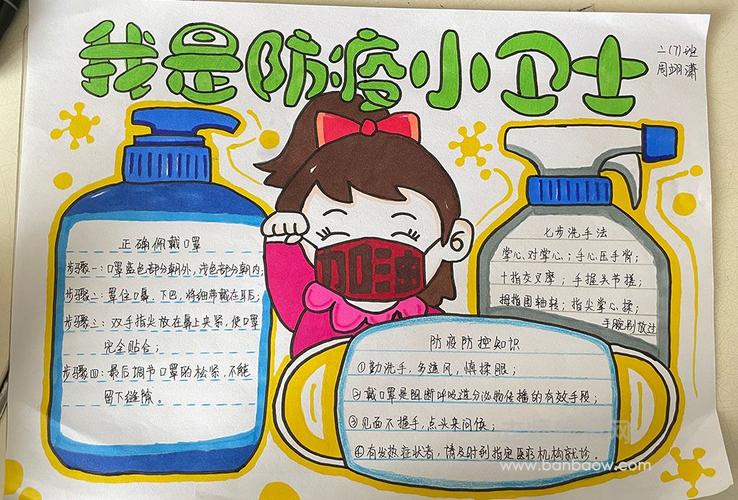 我是防疫小卫士
二(7)班
周翊潇
正确佩戴口罩
步骤一:口罩蓝色部分朝外,浅色部分朝内;
步骤二:罩住口鼻、下巴,将细带戴在耳后;
步骤三:双手指尖放在鼻上夹紧,使口罩
完全贴合;
步骤四:最后调节口罩的松紧,不能
留下缝隙。
加油
七步洗手法
掌心对掌心;手心压手背;
十指交叉摩,手握关节搓;
拇指围轴转;指尖掌心揉;
手腕别放过
防疫防控知识
①勤洗手,多通风,慎揉眼;
②戴口罩是阻断呼吸道分泌物传播的有效手段;
③见面不握手,点头来问候;
④有发热症状者,请及时到指定医疗机构就诊。
www.banbaow.com